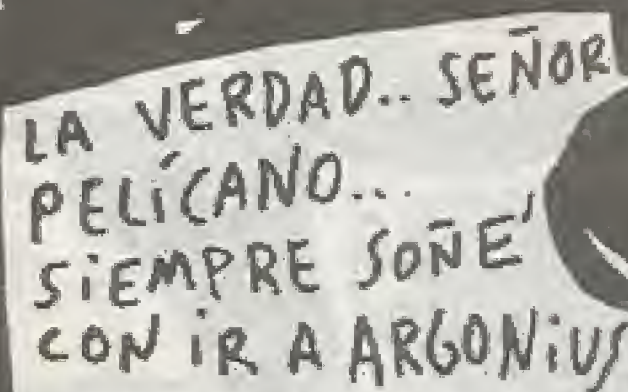 LA VERDAD.. SEÑOR
PELÍCANO...
SiEMPRE SOÑÉ
CON iR A ARGONiUS